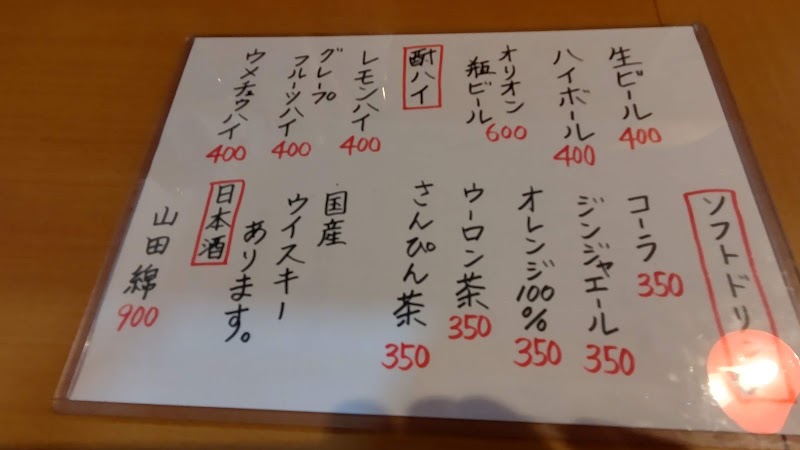 生ビール
400
ハイボール
400
オリオン
瓶ビール
600
酎ハイ
レモンハイ
400
グレープ
フルーツハイ
400
ウメチュウハイ
400
ソフトドリ
コーラ
350
ジンジャエール
350
オレンジ100%
350
ウーロン茶
350
さんぴん茶
350
国産
ウイスキー
あります。
日本酒
山田綿
900